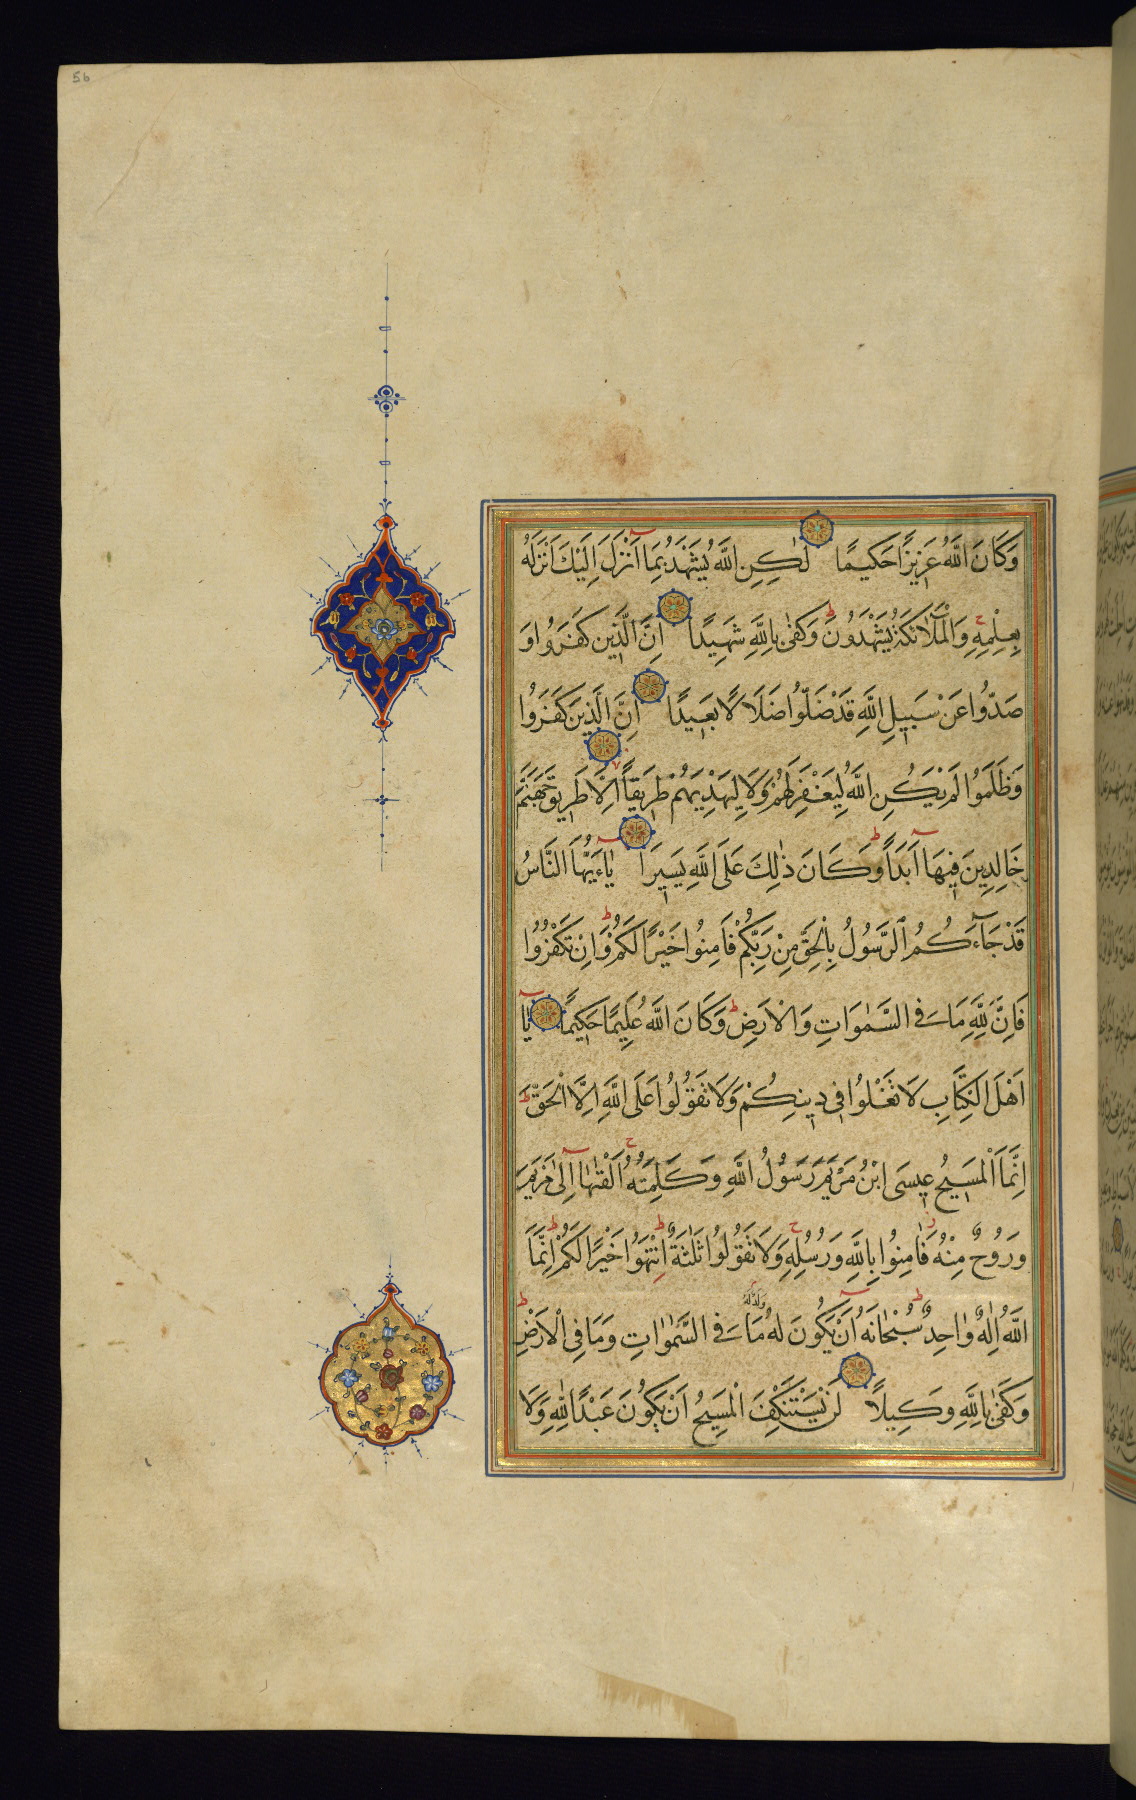 56
وَكَانَ اللَّهُ عَزِيزًا حَكِيمًا لٰكِنِ اللَّهُ يَشْهَدُ بِمَا اَنْزَلَ اِلَيْكَ اَنْزَلَهُ
بِعِلْمِهِ وَالْمَلَائِكَةُ يَشْهَدُونَ وَكَفٰى بِاللَّهِ شَهِيدًا اِنَّ الَّذِينَ كَفَرُوا وَ
صَدُّوا عَنْ سَبِيلِ اللَّهِ قَدْ ضَلُّوا ضَلَالًا بَعِيدًا اِنَّ الَّذِينَ كَفَرُوا
وَظَلَمُوا لَمْ يَكُنِ اللَّهُ لِيَغْفِرَ لَهُمْ وَلَا لِيَهْدِيَهُمْ طَرِيقًا اِلَّا طَرِيقَ جَهَنَّمَ
خَالِدِينَ فِيهَا اَبَدًا وَكَانَ ذٰلِكَ عَلَى اللَّهِ يَسِيرًا يٰاءَيُّهَا النَّاسُ
قَدْ جَاءَكُمُ الرَّسُولُ بِالْحَقِّ مِنْ رَبِّكُمْ فَاٰمِنُوا خَيْرًا لَكُمْ وَاِنْ تَكْفُرُوا
فَاِنَّ لِلَّهِ مَا فِى السَّمٰوَاتِ وَالْاَرْضِ وَكَانَ اللَّهُ عَلِيمًا حَكِيمًا يٰا
اَهْلَ الْكِتَابِ لَا تَغْلُوا فِى دِينِكُمْ وَلَا تَقُولُوا عَلَى اللَّهِ اِلَّا الْحَقَّ
اِنَّمَا الْمَسِيحُ عِيسَى ابْنُ مَرْيَمَ رَسُولُ اللَّهِ وَكَلِمَتُهُ اَلْقٰىهَا اِلٰى مَرْيَمَ
وَرُوحٌ مِنْهُ فَاٰمِنُوا بِاللَّهِ وَرُسُلِهِ وَلَا تَقُولُوا ثَلٰثَةٌ اِنْتَهُوا خَيْرًا لَكُمْ اِنَّمَا
اللَّهُ اِلٰهٌ وٰاحِدٌ سُبْحٰانَهُ اَنْ يَكُونَ لَهُ وَلَدٌ لَهُ مَا فِى السَّمٰوٰاتِ وَمَا فِى الْاَرْضِ
وَكَفٰى بِاللَّهِ وَكِيلًا لَنْ يَسْتَنْكِفَ الْمَسِيحُ اَنْ يَكُونَ عَبْدًا لِلَّهِ وَلَا